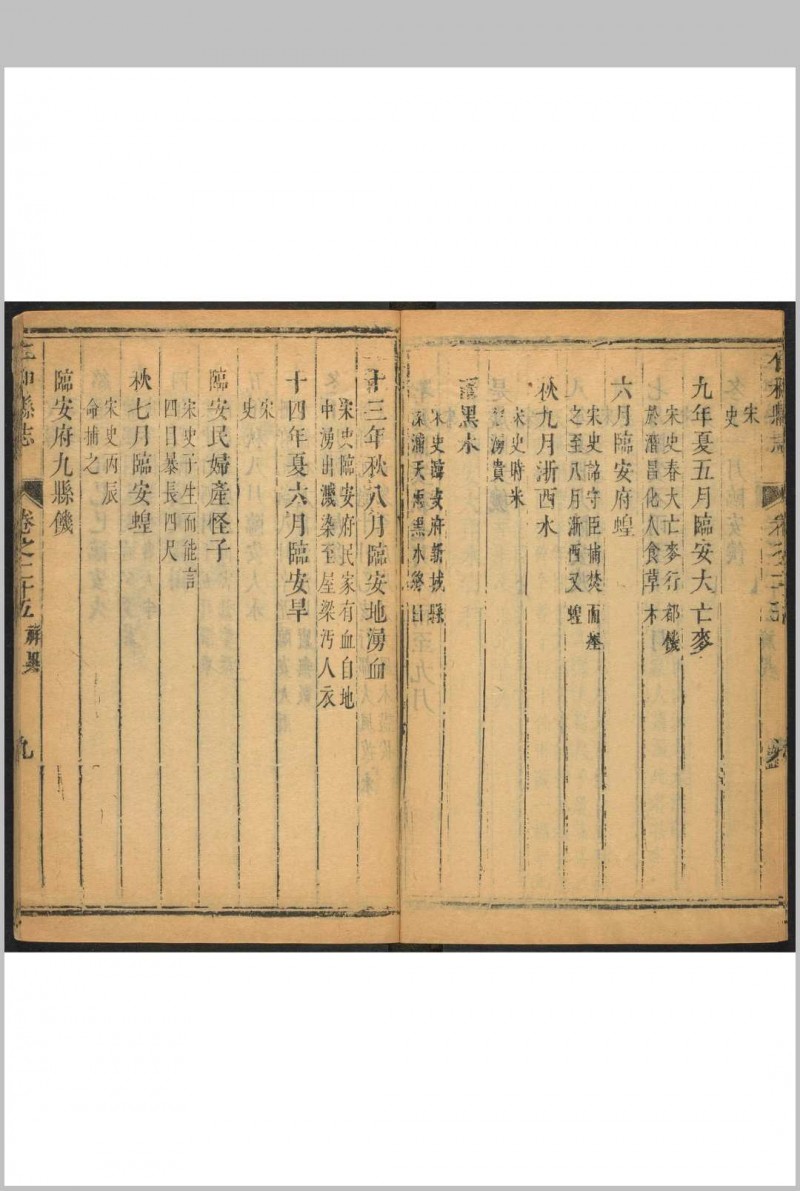 宋
史
九年夏五月臨安大亡麥
宋史春大亡麥行都饑
於潛昌化人食草木
六月臨安府蝗
宋史詔守臣捕焚而瘞
之至八月浙西又蝗
秋九月浙西水
宋史時米
湧貴
黑水
宋史臨安府新城縣
深浦天雨黑水終日
十三年秋八月臨安地湧血
宋史臨安府民家有血自地
中湧出濺染至屋梁污人衣
十四年夏六月臨安旱
宋
史
臨安民婦產怪子
宋史子生而能言
四日暴長四尺
秋七月臨安蝗
宋史丙辰
命捕之
臨安府九縣饑
仁和縣志
卷之二十五
祥異
九